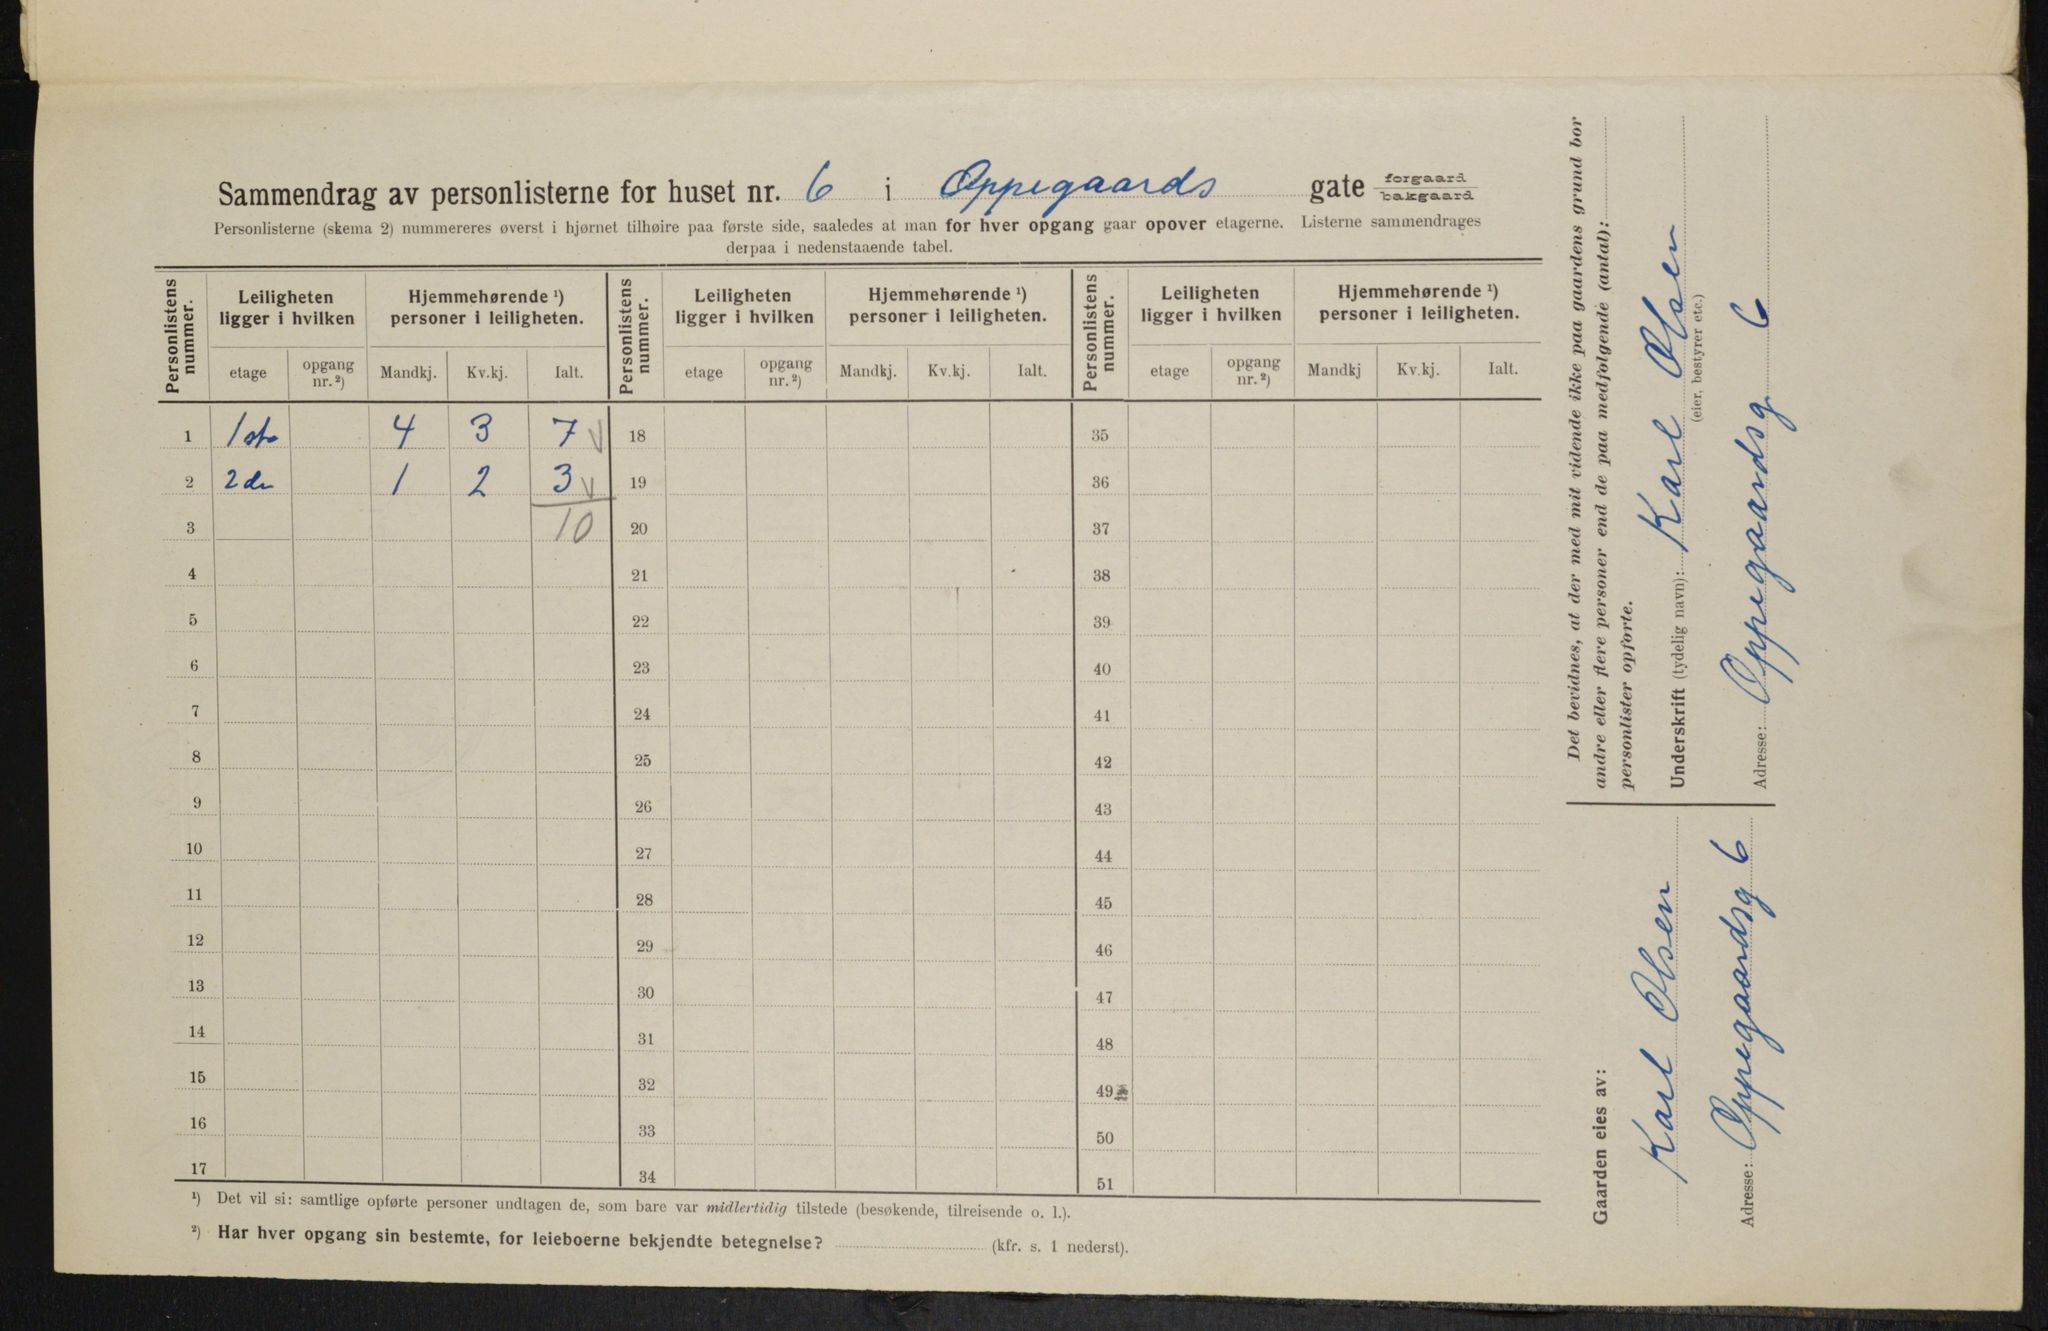 Sammendrag av personlisterne for huset nr. 6 i Oppegaards gate forgaard bakgaard
Personlisterne (skema 2) nummereres øverst i hjørnet tilhøire paa første side, saaledes at man for hver opgang gaar opover etagerne. Listerne sammendrages
derpaa i nedenstaaende tabel.
Personlistens nummer. Leiligheten ligger i hvilken Hjemmehørende ¹) personer i leiligheten. Personlistens nummer. Leiligheten ligger i hvilken Hjemmehørende ¹) personer i leiligheten. Personlistens nummer. Leiligheten ligger i hvilken Hjemmehørende ¹) personer i leiligheten.
etage opgang nr. ²) Mandkj. Kv.kj. Ialt. etage opgang nr. ²) Mandkj. Kv.kj. Ialt. etage opgang nr. ²) Mandkj Kv.kj. Ialt.
1 1ste 4 3 7 18 35
2 2den 1 2 3 19 36
3 10 20 37
4 21 38
5 22 39
6 23 40
7 24 41
8 25 42
9 26 43
10 27 44
11 28 45
12 29 46
13 30 47
14 31 48
15 32 49
16 33 50
17 34 51
¹) Det vil si: samtlige opførte personer undtagen de, som bare var midlertidig tilstede (besøkende, tilreisende o. l.).
²) Har hver opgang sin bestemte, for leieboerne bekjendte betegnelse? (kfr. s. 1 nederst).
Det bevidnes, at der med mit vidende ikke paa gaardens grund bor
andre eller flere personer end de paa medfølgende (antal):
personlister opførte.
Underskrift (tydelig navn): Karl Olsen
(eier, bestyrer etc.)
Adresse: Oppegaardsg 6
Gaarden eies av:
Karl Olsen
Adresse: Oppegaardsg 6